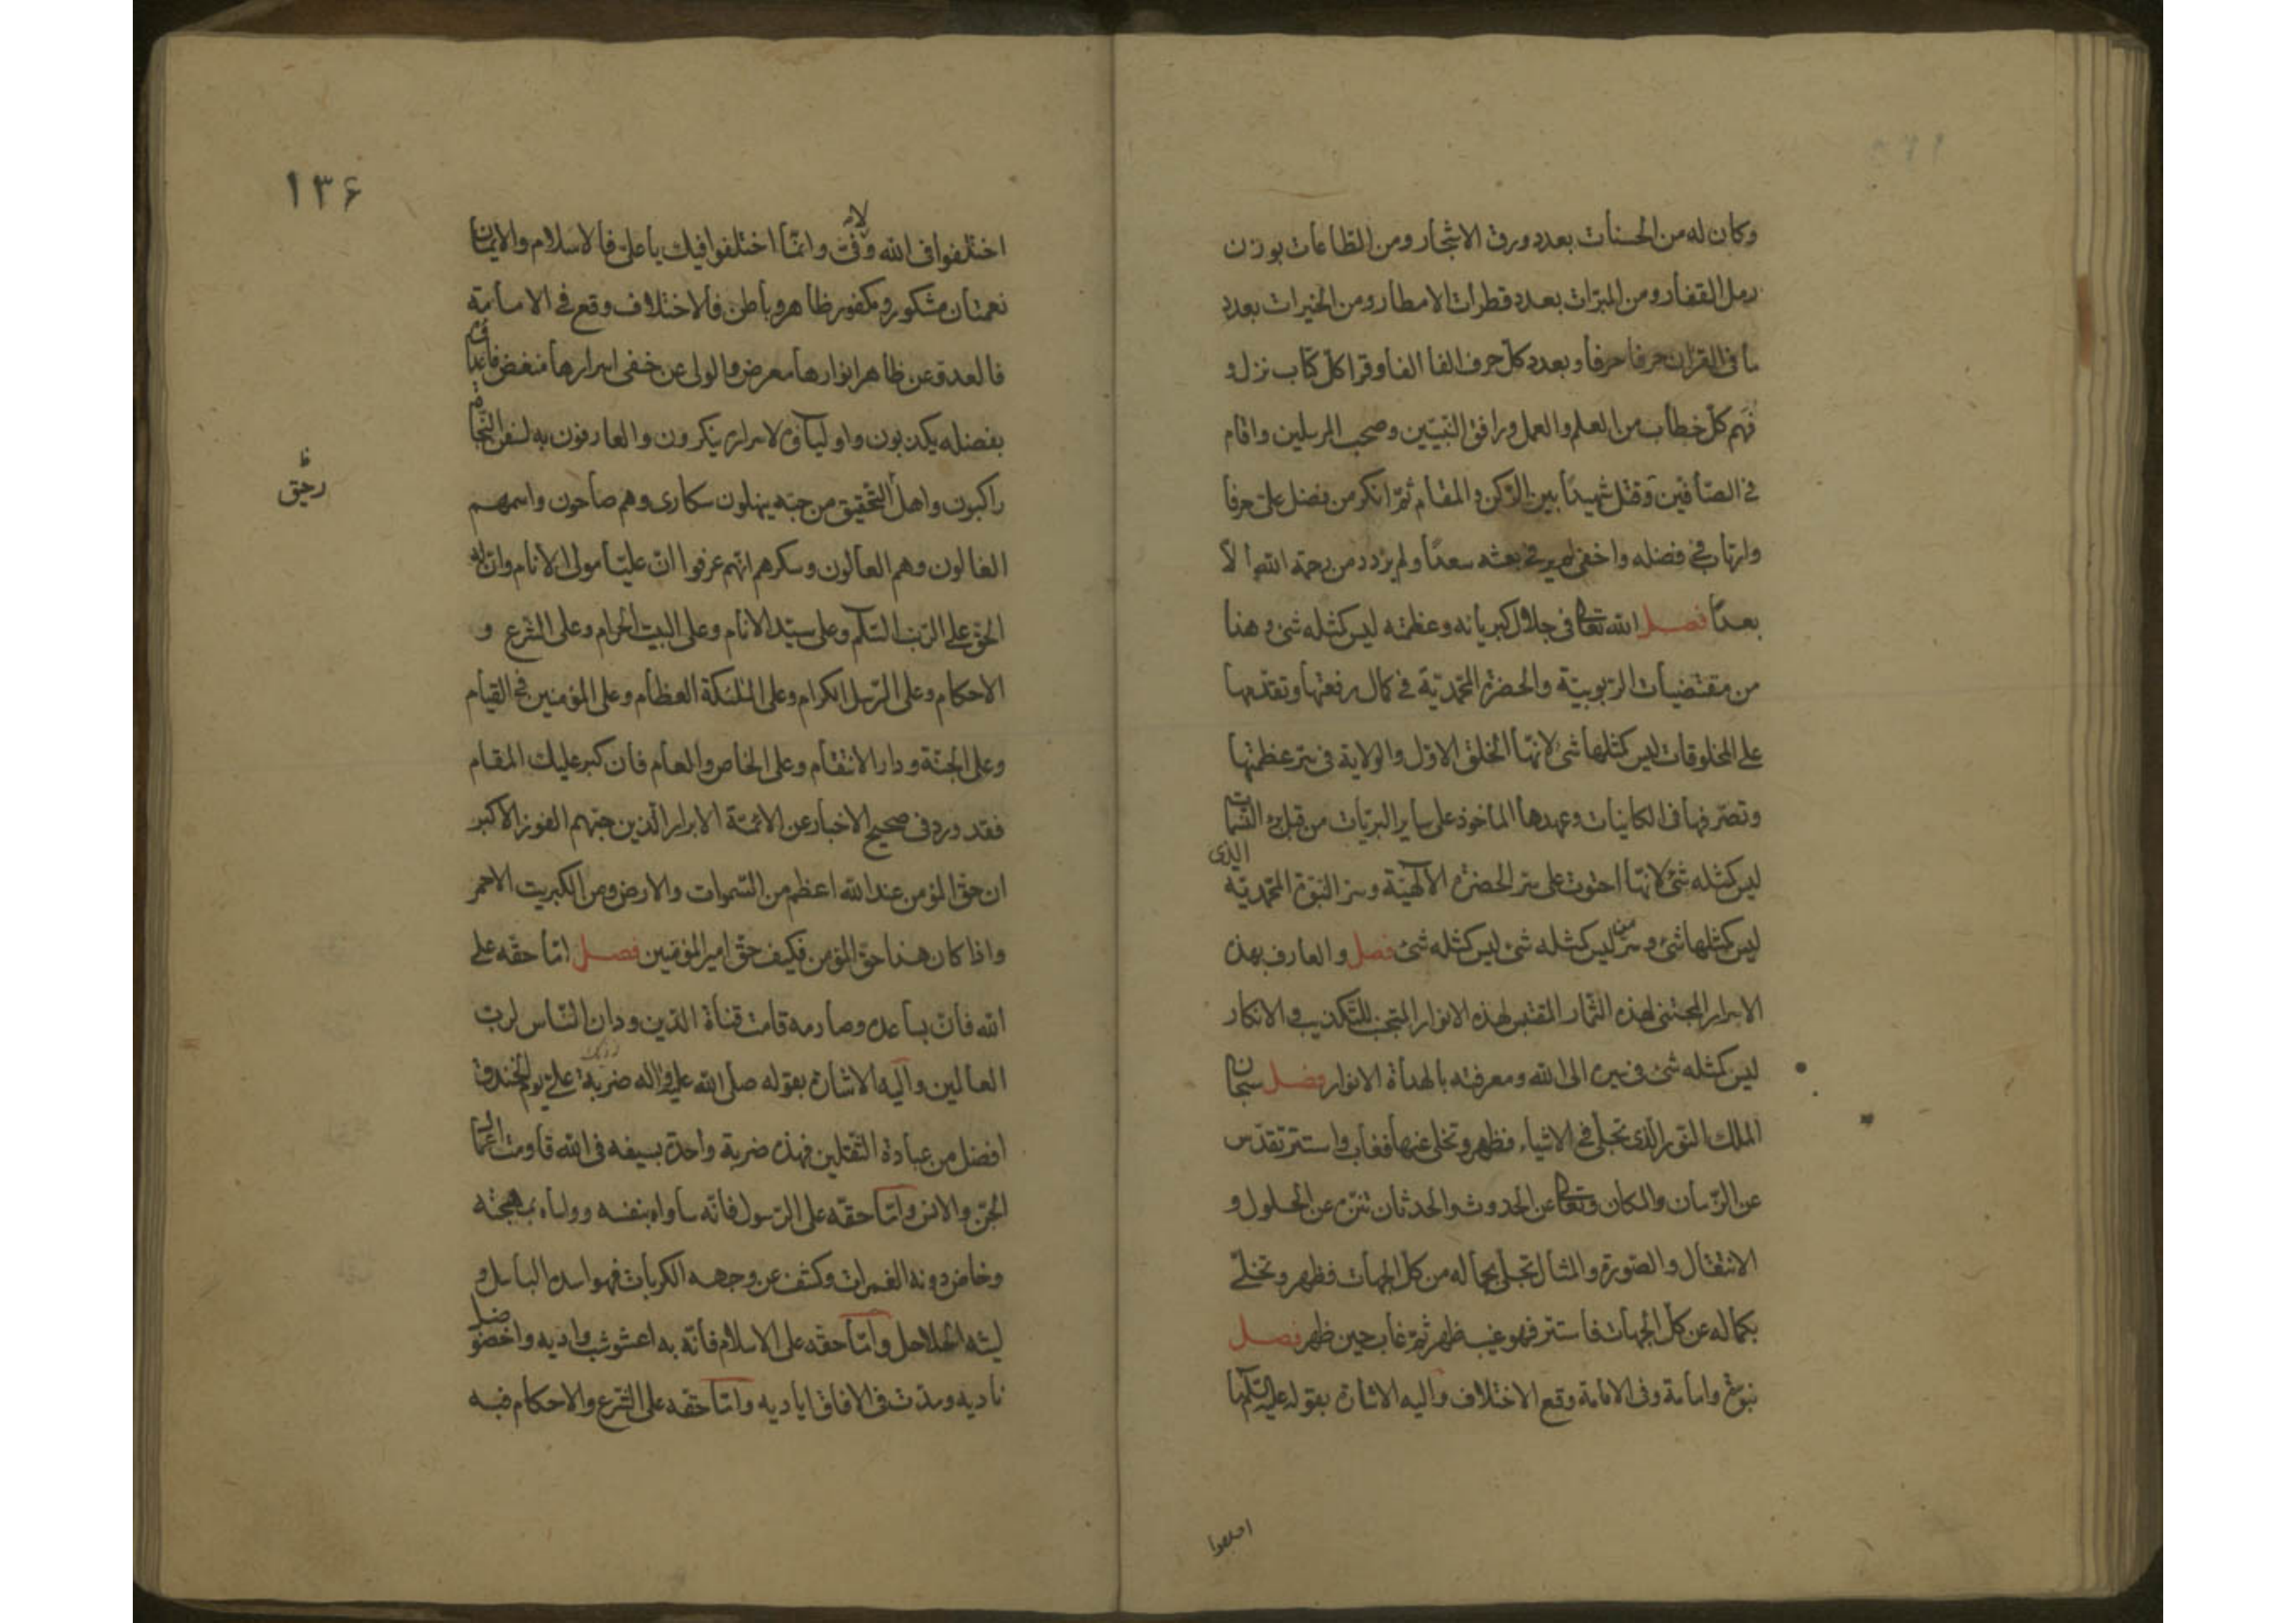 وكان له من الحسنات بعدد ورق الاشجار ومن الطاعات بوزن
رمل القفار ومن المبرّات بعدد قطرات الامطار ومن الخيرات بعدد
ما فى القرآن حرفا حرفا وبعدد كلّ حرف الفا الفا وقرا كلّ كتاب نزل و
فهم كلّ خطاب من العلم والعمل ورافق النّبيّين وصحب المرسلين واقام
فى الصّافين وقتل شهيدًا بين الرّكن والمقام ثمّ انكر من فضل علىّ حرفا
وارتاب فى فضله واخفى فى بعثه سعدًا ولم يزدد من رحمة الله الّا
بعدًا فصل الله تعالى فى جلال كبريائه وعظمته ليس كمثله شئ و هذا
من مقتضيات الرّبوبيّة والحضرة المحمّديّة فى كمال رفعتها وتقدّمها
على المخلوقات ليس كمثلها شئ لانّها الخلق الاوّل والولاية فى سرّ عظمتها
وتصرّفها فى الكاينات وعهدها الماخوذ على ساير البريّات من قبل برء النّسمات
ليس كمثله شئ لانّها احتوت على سرّ الحضرة الآلهيّة وسرّ النّبوّة المحمّديّة الذى
ليس كمثلها شئ و سرّ من ليس كمثله شئ ليس كمثله شئ فصل والعارف بهذه
الاسرار المجتنى لهذه الثّمار المقتبس لهذه الانوار المتجنّب للتّكذيب والانكار
ليس كمثله شئ فى سيره الى الله ومعرفته بالهداة الانوار فصل سبحان
الملك النّور الّذى تجلّى فى الاشياء فظهر وتخلى عنها فغاب واستتر تقدّس
عن الزّمان والمكان وتعالى عن الحدوث والحدثان تنزّه عن الحلول و
الانتقال والصّورة والمثال تجلّى بجماله من كلّ الجهات فظهر وتخلّى
بكماله عن كلّ الجهات فاستتر فهو غيب ظهر ثمّ غاب حين ظهر فصل
نبوّة وامامة وفى الامامة وقع الاختلاف واليه الاشارة بقوله عليه السّلام ما
اختلفوا
۱۳۶
اختلفوا فى الله ولا فىّ وانّما اختلفوا فيك يا علىّ فالاسلام والايمان
نعمتان مشكور ومكفور ظاهر وباطن فالاختلاف وقع فى الامامة
فالعدو عن ظاهر انوارها معرض والولى عن خفى اسرارها منغض فاعداؤه
بفضله يكذبون واولياؤه لاسراره ينكرون والعارفون به لسفن النّجاة
راكبون واهل التّحقيق من حبّه ينهلون سكارى وهم صاحون واسمهم
رحيق ظ
الغالون وهم العالون وسكرهم انّهم عرفوا انّ عليّا مولى الانام وانّ له
الحق على الرّب السّلام وعلى سيّد الانام وعلى البيت الحرام وعلى الشّرع و
الاحكام وعلى الرّسل الكرام وعلى الملئكة العظام وعلى المؤمنين فى القيام
وعلى الجنّة ودار الانتقام وعلى الخاص والعام فان كبر عليك المقام
فقد ورد فى صحيح الاخبار عن الائمّة الابرار الّذين حبّهم الفوز الاكبر
ان حق المؤمن عند الله اعظم من السّموات والارض ومن الكبريت الاحمر
واذا كان هذا حق المؤمن فكيف حقّ امير المؤمنين فصل امّا حقّه على
الله فانّ بساعده وصارمه قامت قناة الدّين ودان النّاس لربّ
العالمين واليه الاشارة بقوله صلى الله عليه واله ضربة علىّ يوم الخندق
افضل من عبادة الثّقلين فهذه ضربة واحدة بسيفه فى الله قاومت اعمال
الجنّ والانس وامّا حقّه على الرّسول فانّه ساواه بنفسه وواساه بمهجته
وخاض دونه الغمرات وكشف عن وجهه الكربات فهو اسده الباسل و
ليثه الحلاحل وامّا حقّه على الاسلام فانّه به اعشوشب واديه واخضوضل
ناديه ومدّت فى الافاق اياديه وامّا حقه على الشّرع والاحكام فبه